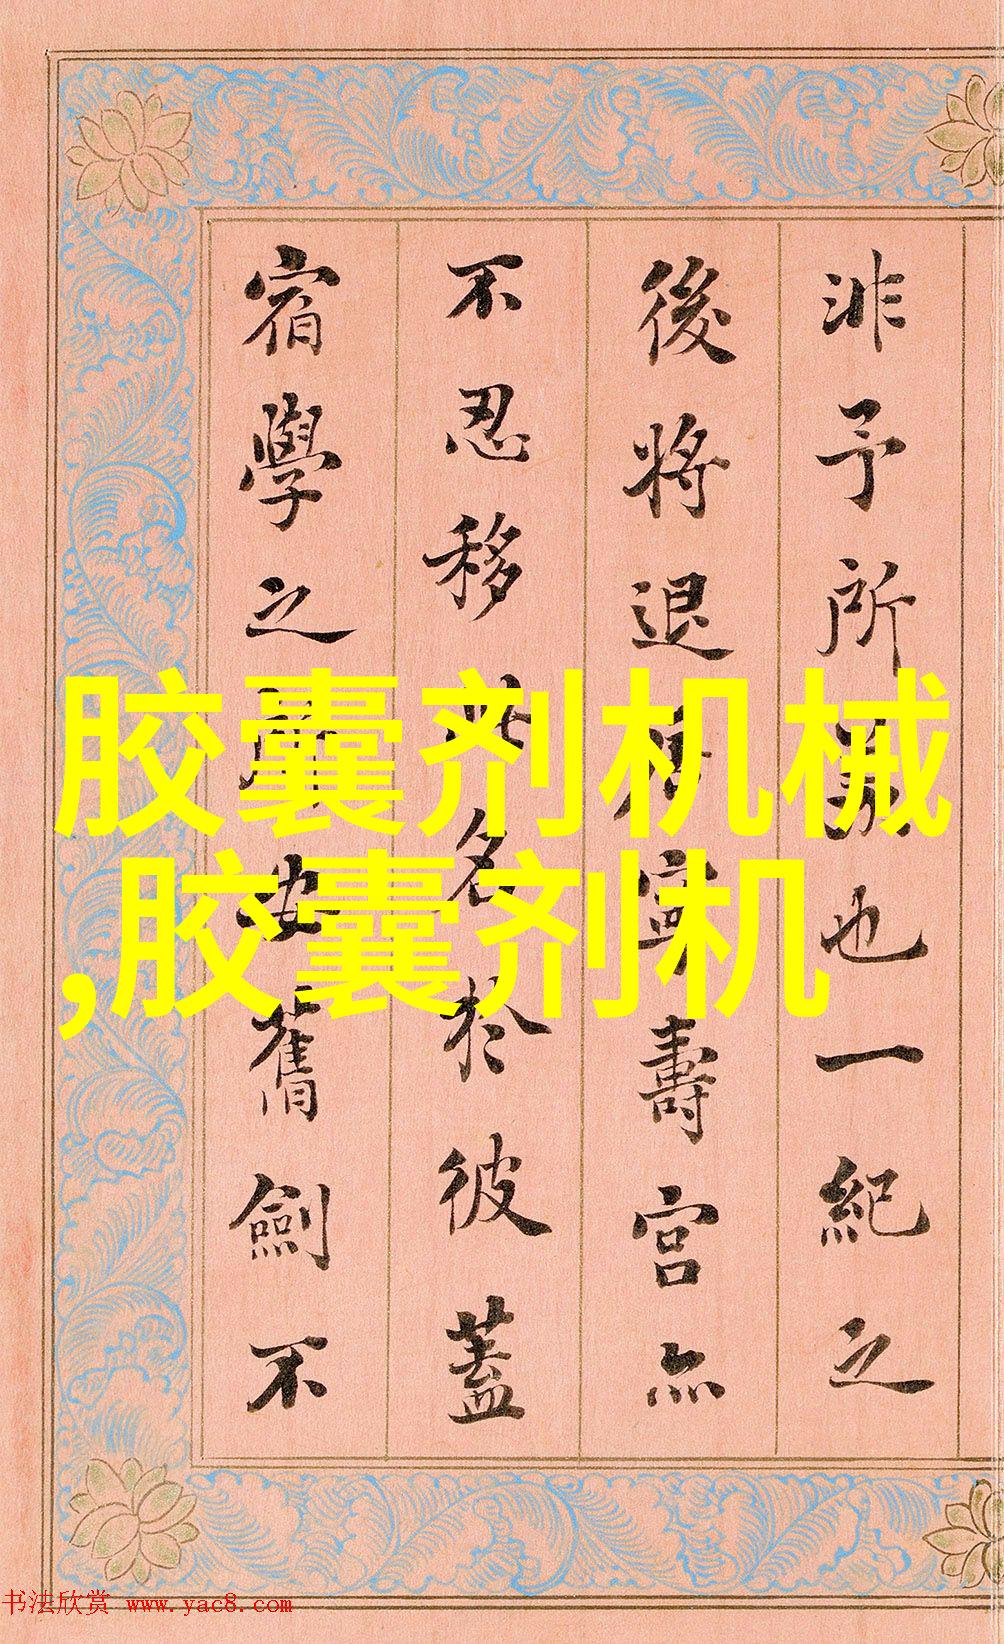 非予所也一紀之
後將退寧壽宮亦
不忍移此名於彼蓋
宿學之所安舊劍不
胶囊剂机械
,胶囊剂机
书法欣赏 www.yac8.com